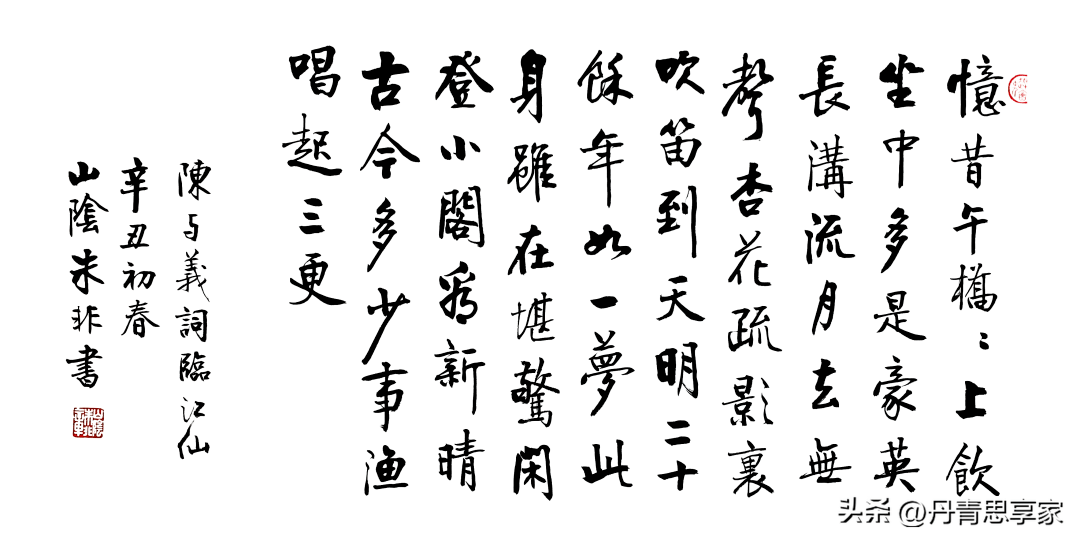 憶昔午橋〻上飲
坐中多是豪英
長溝流月去無
聲杏花疏影裏
吹笛到天明二十
餘年如一夢此
身雖在堪驚閑
登小閣看新晴
古今多少事漁
唱起三更
陳与義詞臨江仙
辛丑初春
山陰朱非書
头条 @丹青思享家